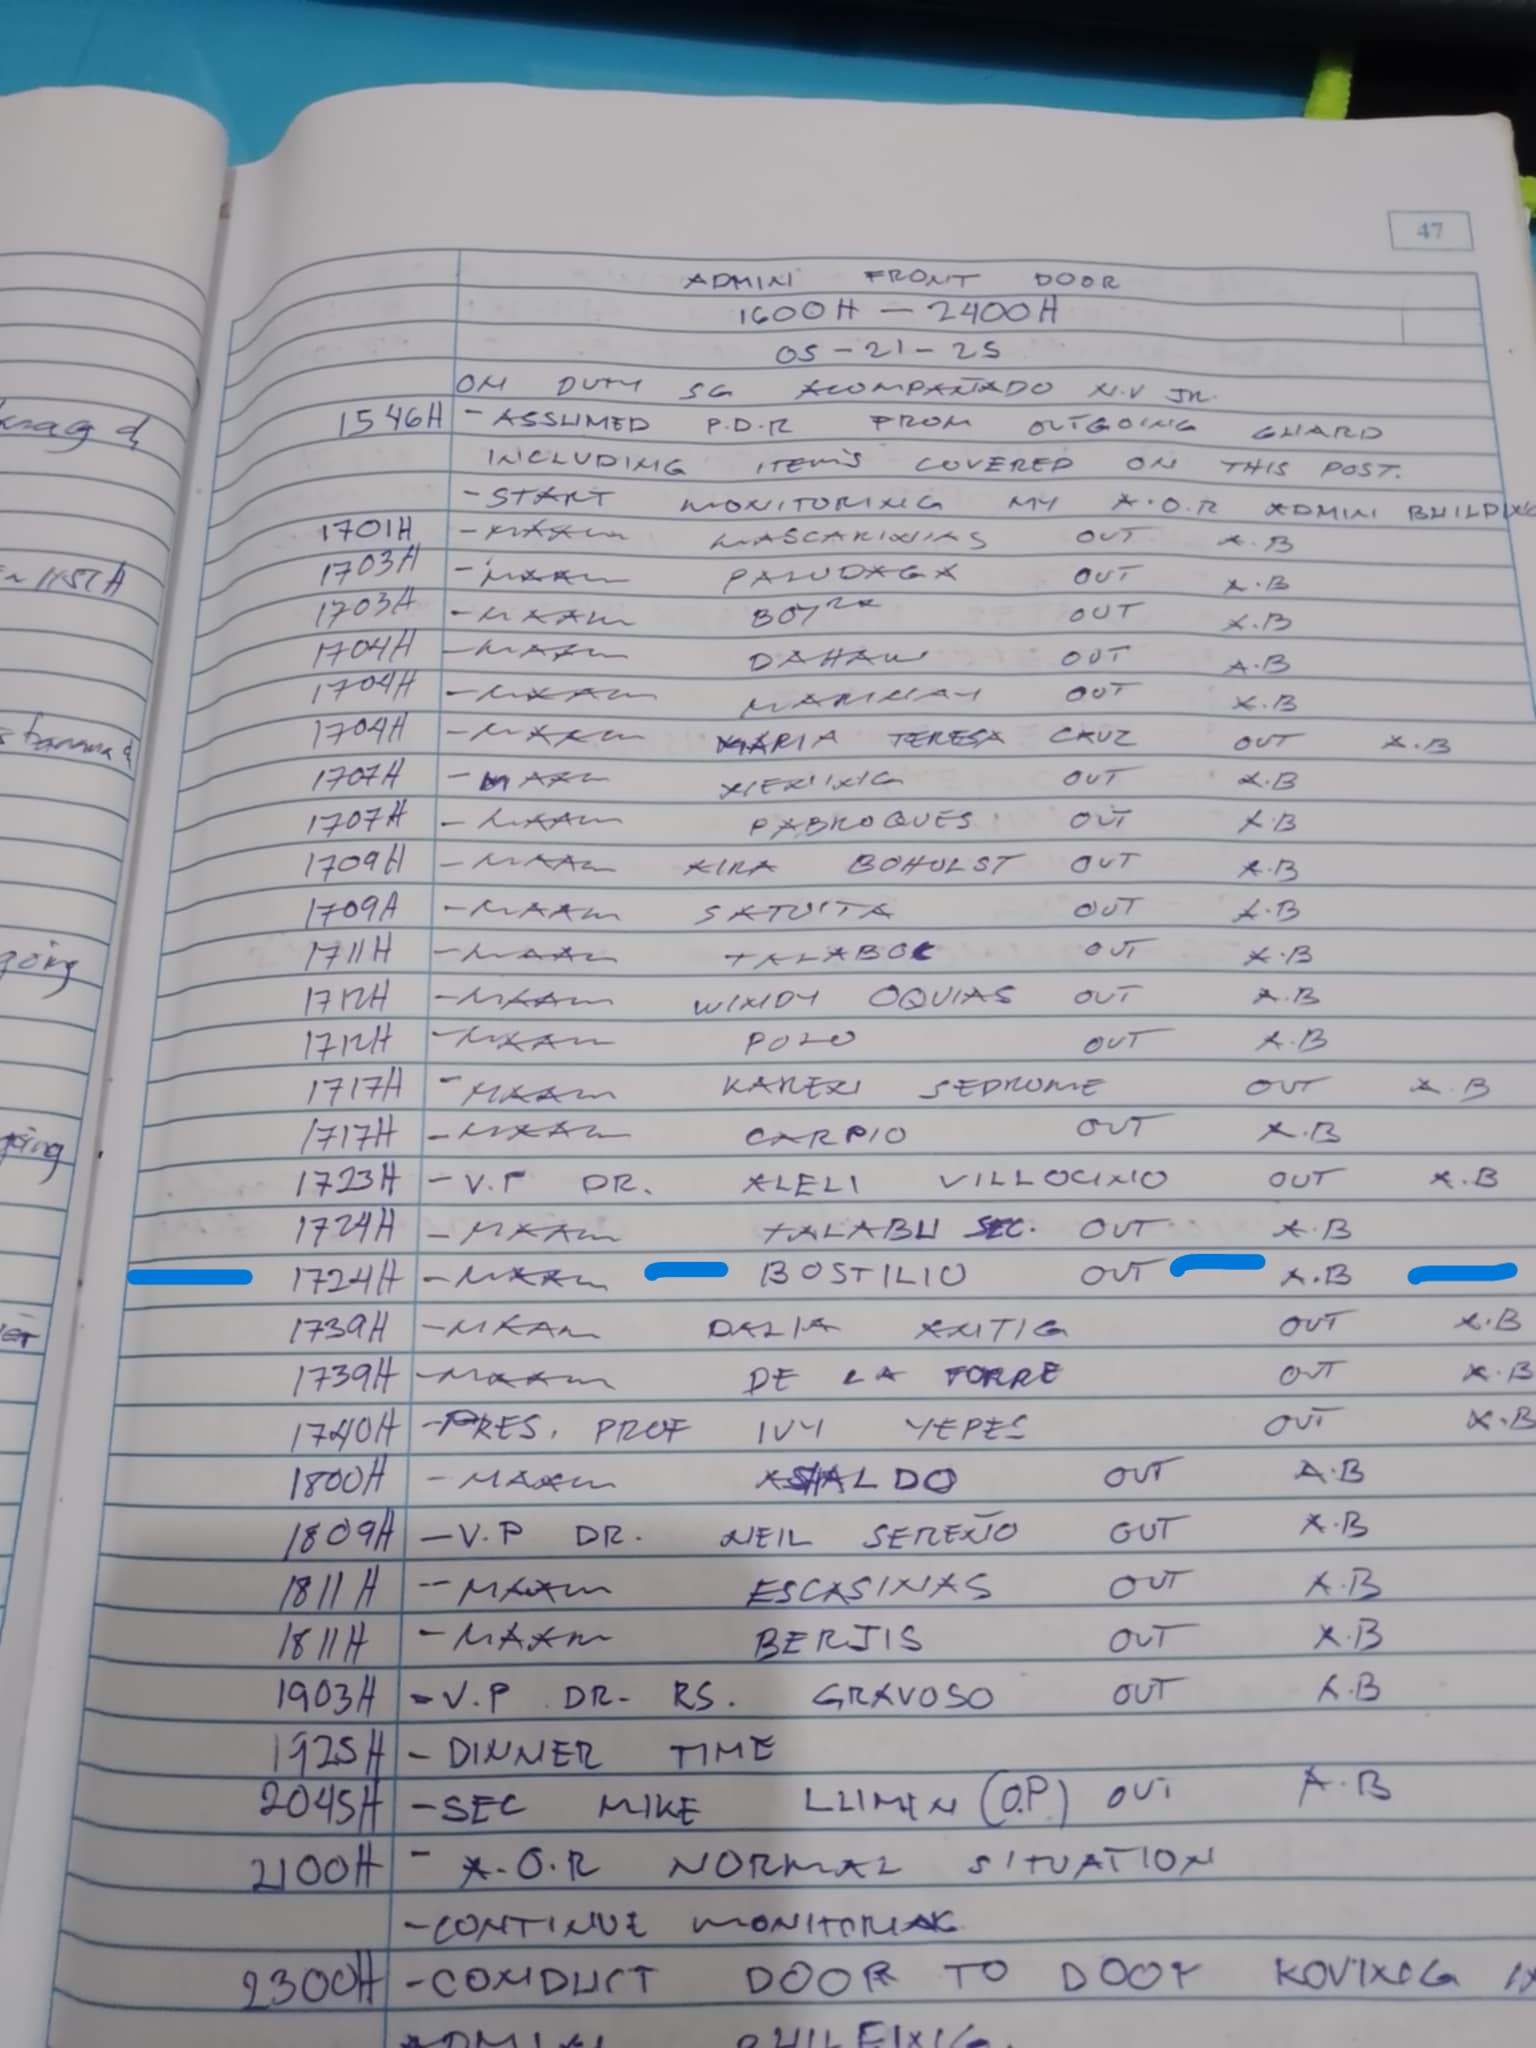 47
ADMIN FRONT DOOR
1600H - 2400H
05-21-25
ON DUTY SG ACOMPAÑADO N.V JR.
1546H - ASSUMED P.D.R FROM OUTGOING GUARD
INCLUDING ITEMS COVERED ON THIS POST.
- START MONITORING MY A.O.R ADMIN BUILDING
1701H - MAAM MASCARINAS OUT A.B
1703H - MAAM PALUDAGA OUT A.B
1703H - MAAM OUT A.B
1704H - MAAM DAHAN OUT A.B
1704H - MAAM MARINAY OUT A.B
1704H - MAAM MARIA TERESA CRUZ OUT A.B
1707H - MAAM OUT A.B
1707H - MAAM PABROQUES OUT A.B
1709H - MAAM KIRA BOHOLST OUT A.B
1709H - MAAM SATUITA OUT A.B
1711H - MAAM TALABOC OUT A.B
1712H - MAAM WINDY OQUIAS OUT A.B
1712H - MAAM POLO OUT A.B
1717H - MAAM KAREN SEDROME OUT A.B
1717H - MAAM CARPIO OUT A.B
1723H - V.P DR. ALELI VILLOCINO OUT A.B
1724H - MAAM TALABU SEC. OUT A.B
1724H - MAAM BOSTILIO OUT A.B
1739H - MAAM DALIA ANTIG OUT A.B
1739H - MAAM DE LA TORRE OUT A.B
1740H - PRES. PROF IVY YEPES OUT A.B
1800H - MAAM OUT A.B
1809H - V.P DR. NEIL SEREÑO OUT A.B
1811H - MAAM ESCASINAS OUT A.B
1811H - MAAM BERJIS OUT A.B
1903H - V.P DR. RS. GRAVOSO OUT A.B
1925H - DINNER TIME
2045H - SEC MIKE LUMEN (O.P) OUT A.B
2100H - A.O.R NORMAL SITUATION
- CONTINUE MONITORING
2300H - CONDUCT DOOR TO DOOR ROVING
ADMIN